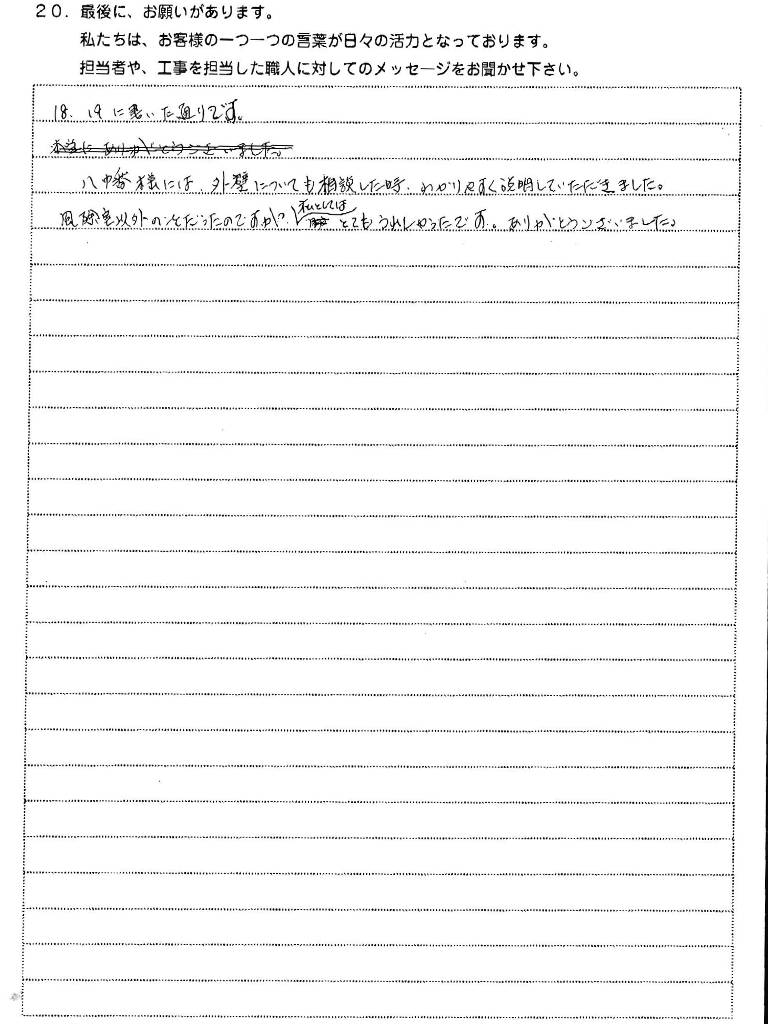 20．最後に、お願いがあります。
私たちは、お客様の一つ一つの言葉が日々の活力となっております。
担当者や、工事を担当した職人に対してのメッセージをお聞かせ下さい。
18、19に書いた通りです。
本当にありがとうございました。
八中番様には、外壁についても相談した時、わかりやすく説明していただきました。
私としては
風除室以外のそだったのですが、とてもうれしかったです。ありがとうございました。